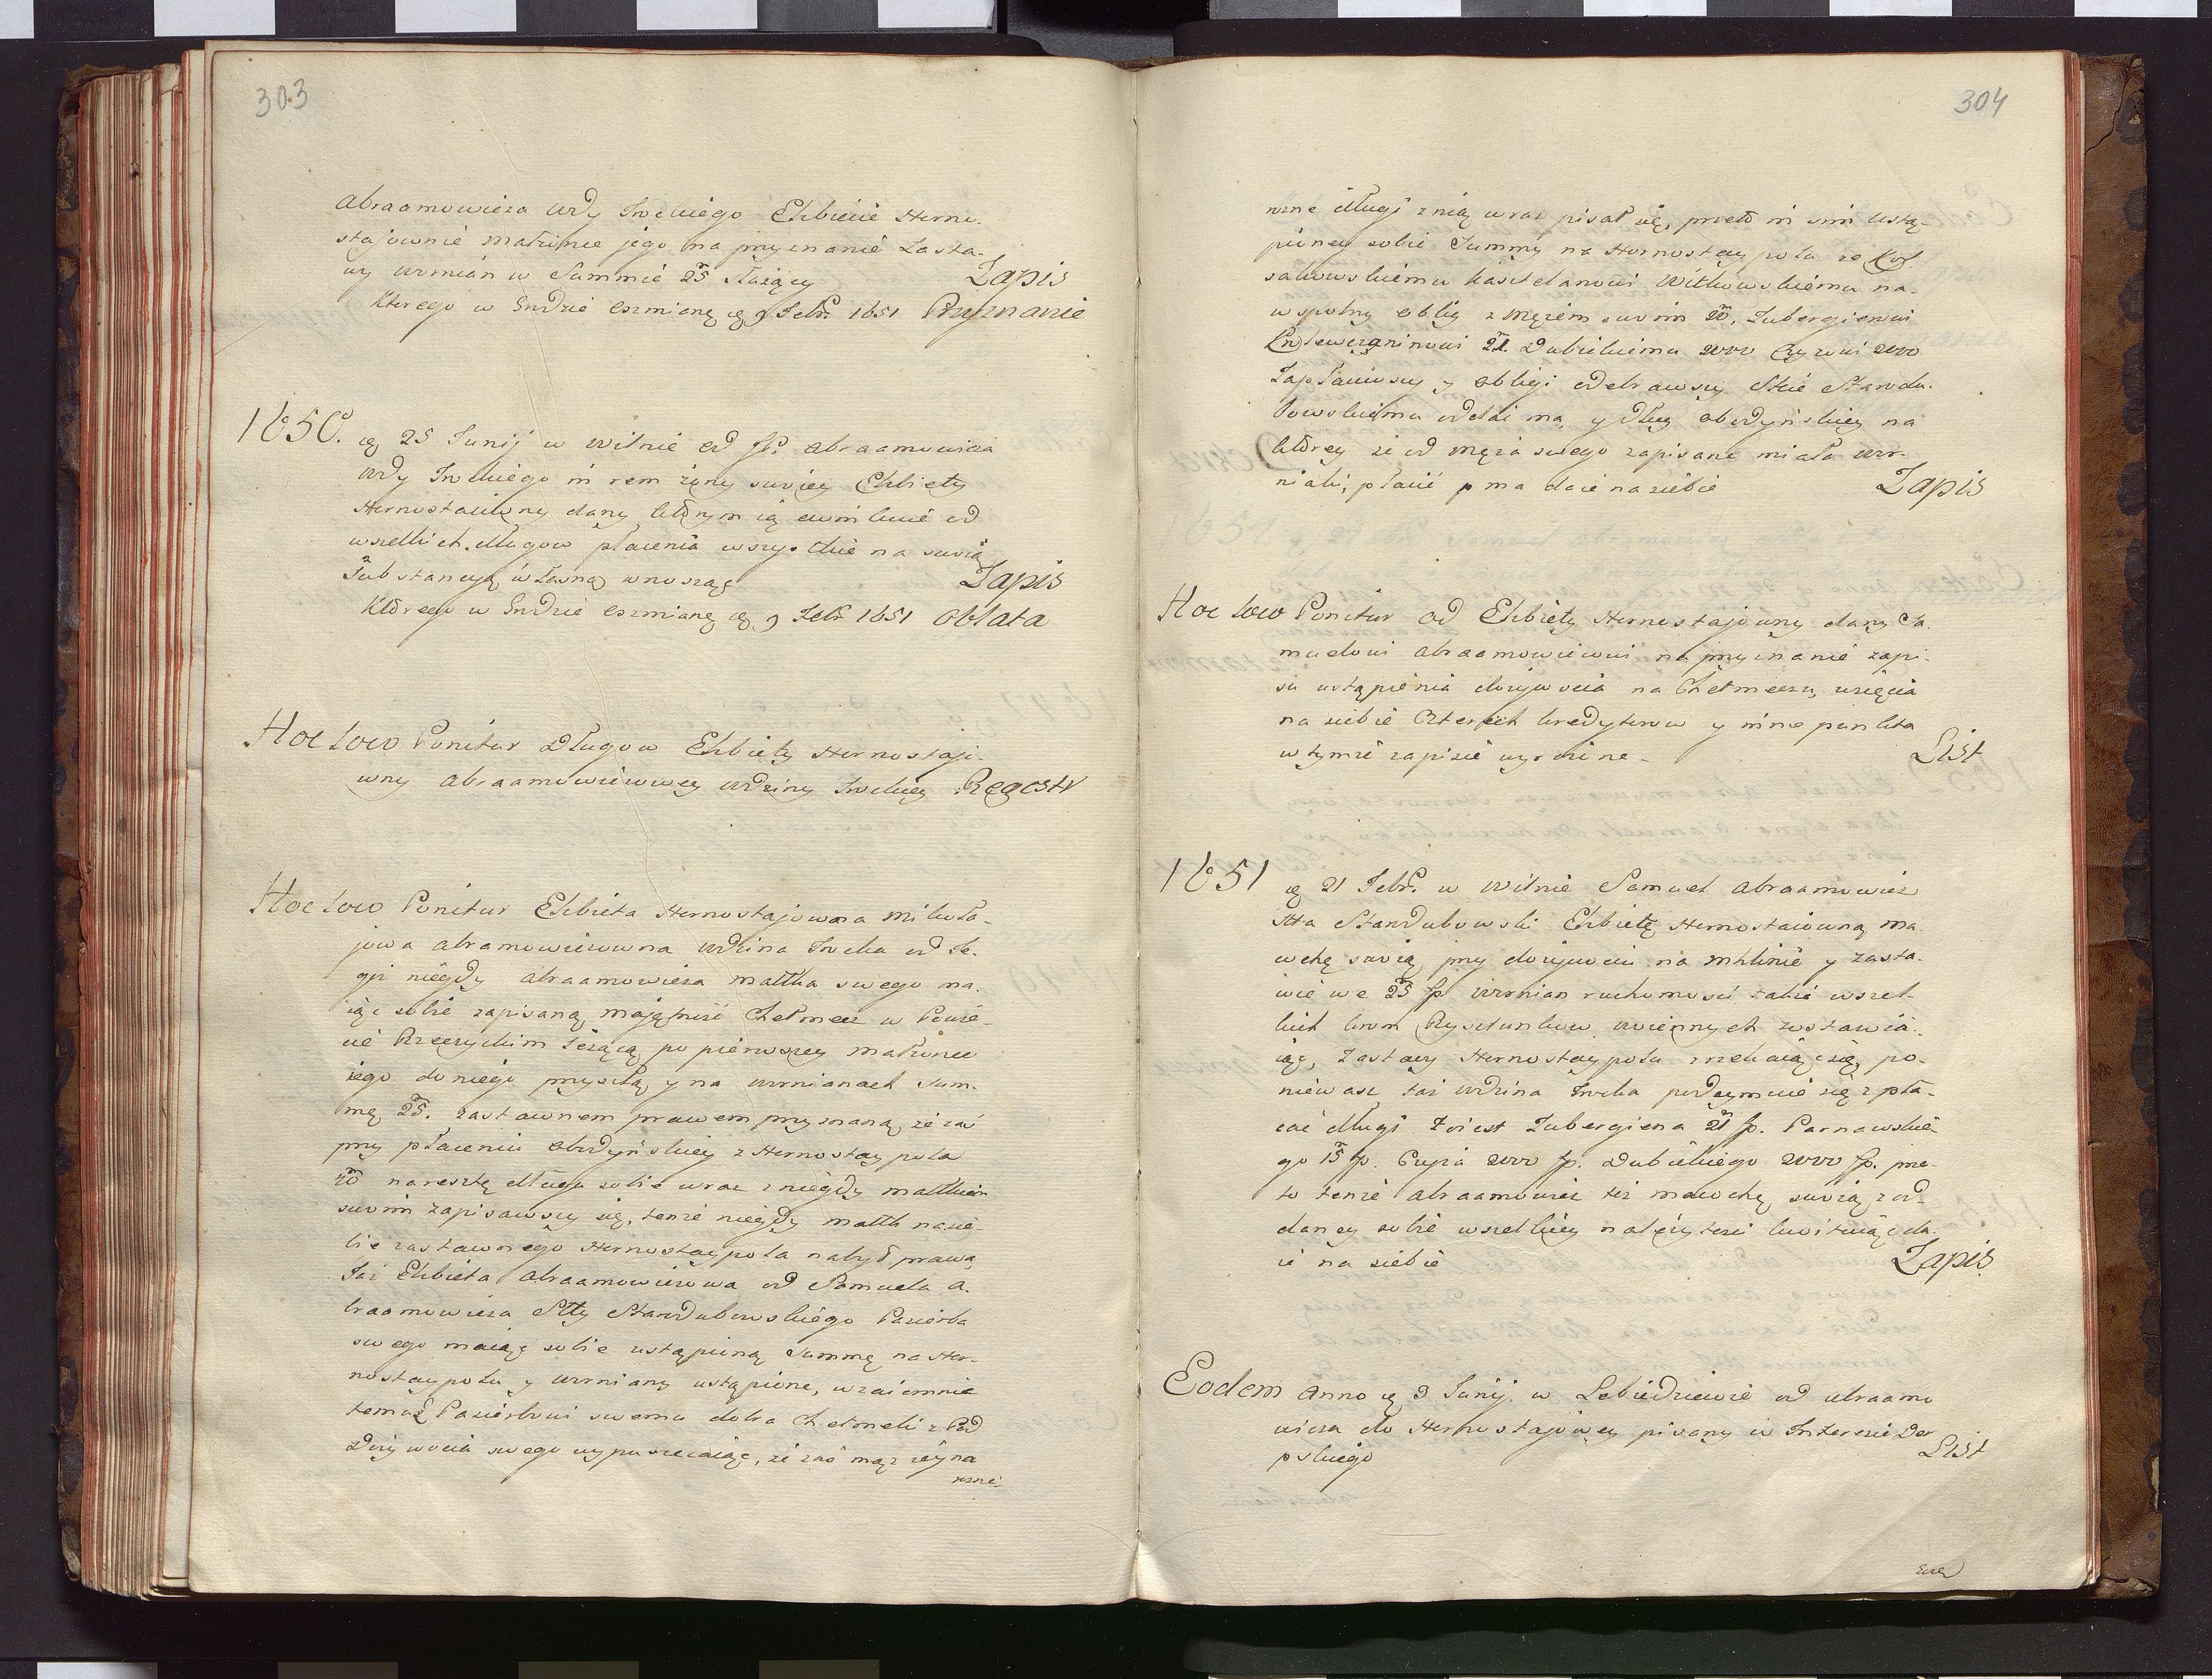 303
Abraamowicza Wdy Trockiego Elzbiecie Horno-
stajownie Małżonce jego na przyznanie Zasta-
wy wrmian w Summie 25 m służący Zapis
Ktorego w Grodzie Oszmianę ꝗ 9 Febr. 1651 Przyznanie
1650. ꝗ 25 Junij w Wilnie od JP. Abraamowicza
Wdy Trockiego in rem żony swoiey Elzbiety
Hornostaiowny dany którym ią ewinkuie od
wszelkich długow płacenia wszystkie na swoią
Substancyą własną wnosząc Zapis
Którego w Grodzie Oszmianę ꝗ 9 Febr 1651 Oblata
Hoc loco Ponitur Długow Elzbiety Hornostajo-
wny Abraamowiczowey Wdziny Trockiey Regestr
Hoc loco Ponitur Elzbieta Hornostajowna Mikoła-
jowa Abramowiczowna Wdzina Trocka od Te-
goż niegdy Abraamowicza małżka swego ma-
iąc sobie zapisaną majętność Chełmecz w Powie-
cie Rzeczyckim leżącą po pierwszey Małżonce
jego do niego przyszłą y na wrmianach Sum-
mę 25 m. zastawnem prawem przyznaną, że zaś
przy płaceniu Obodyńskiey z Hornostaypola
20 m na resztę długu sobie wraz z niegdy małżkiem
swoim zapisawszy się, tenże niegdy małżk na sie-
bie zastawnego Hornostaypola nabył prawa,
Taż Elzbieta Abraamowiczowa od Samuela A-
braamowicza Stty Starodubowskiego Pasierba
swego maiąc sobie ustąpioną Summę na Hor-
nostaypolu y wrmiany ustąpione, wzaiemnie
temuż Pasierbowi swemu dobra Chełmecki z Pod
Dożywocia swego wypuszczaiąc, że zaś mąż iey na
rozne
304
rozne długi z nią wraz pisał się, przeto in vim ustą-
pioney sobie Summy na Hornostaypolu ze Kos-
sakowskiemu Kasztelanowi Witkowskiemu na
wspolny oblig z mężem swoim 20 m, Zubergierowi
21 m. Dubickiemu 2000 Czyżowi 2000
Zapłaciwszy y obligi odebrawszy Stcie Starodu-
bowskiemu oddać ma, y dług Obodyńskiey na
którey że od męża swego zapisane miała wr-
niaki, płacić p ma daie na siebie Zapis
Hoc loco Ponitur od Elzbiety Hornostajowny dany Sa-
muelowi Abraamowiczowi na przyznanie zapi-
su ustąpienia dożywocia na Chełmeczu, wzięcia
na siebie Czterech kredytorow y inne punkta
w tymże zapisie wyrażone. List
1651 ꝗ 21 Febr. w Wilnie Samuel Abraamowicz
Stta Starodubowski Elzbietę Hornostaiowną ma-
cochę swoią przy dożywociu na Mhlinie y zasta-
wie we 25 m fp wrmian ruchomość także wszel-
kich krom Rysztunkow woiennych zostawia-
iąc, Zastawy Hornostaypola zrzekaiąc się, po-
niewasz taż Wdzina Trocka podeymuie się zpła-
cić długi to iest Zubergiera 21 m fp. Parnawskie-
go 15 m fp. Czyża 2000 fp. Dubickiego 2000 fp. prze-
to tenże Abraamowicz też macochę swoią z od-
daney sobie wszelkiey należytości kwituiąc da-
ie na siebie Zapis
Eodem Anno ꝗ 9 Junij. w Lebiedziewie od Abraamo
wicza do Hornostajowey pisany w Interesie Dor
pskiego List